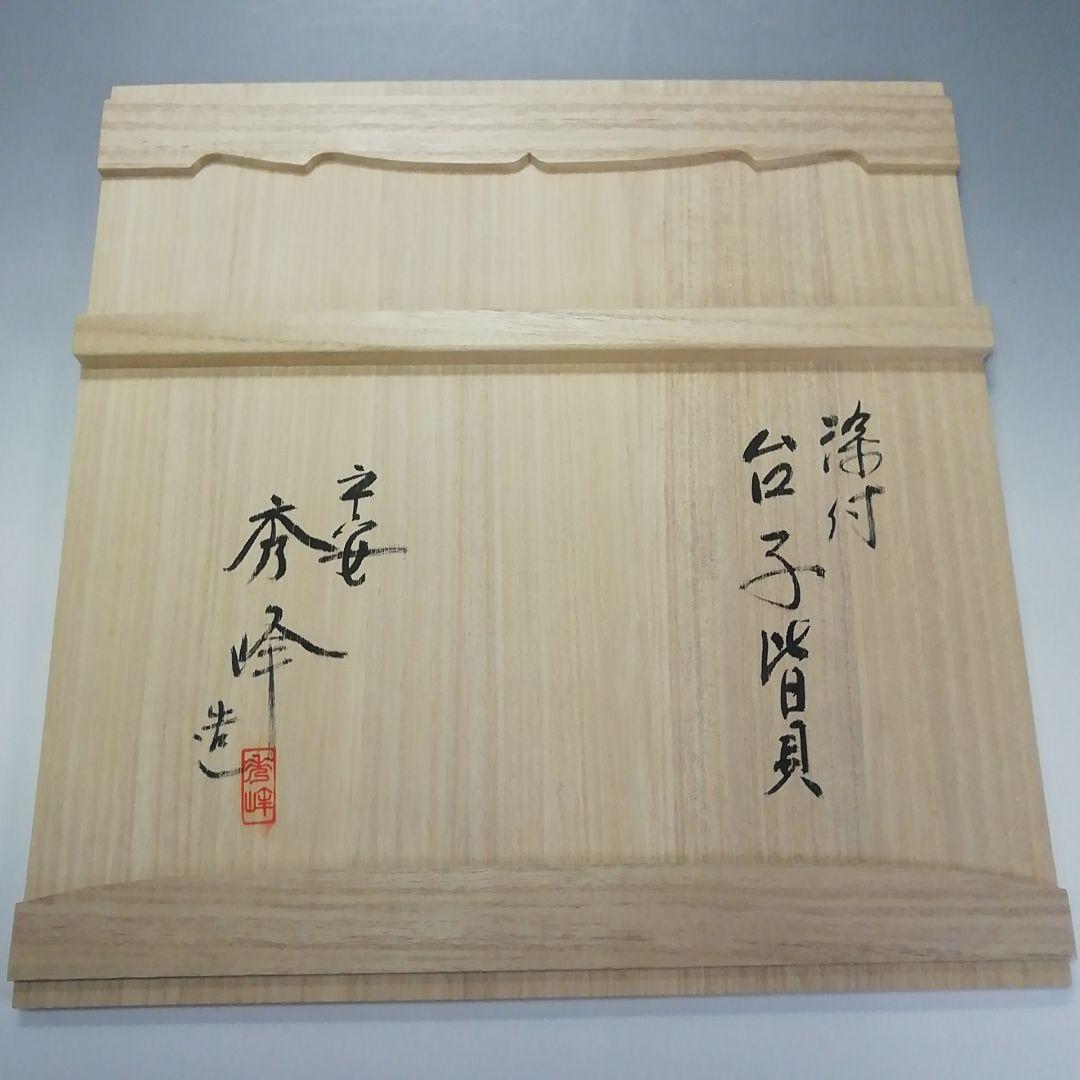 染付
台子皆具
平安
秀峰
造
秀峰